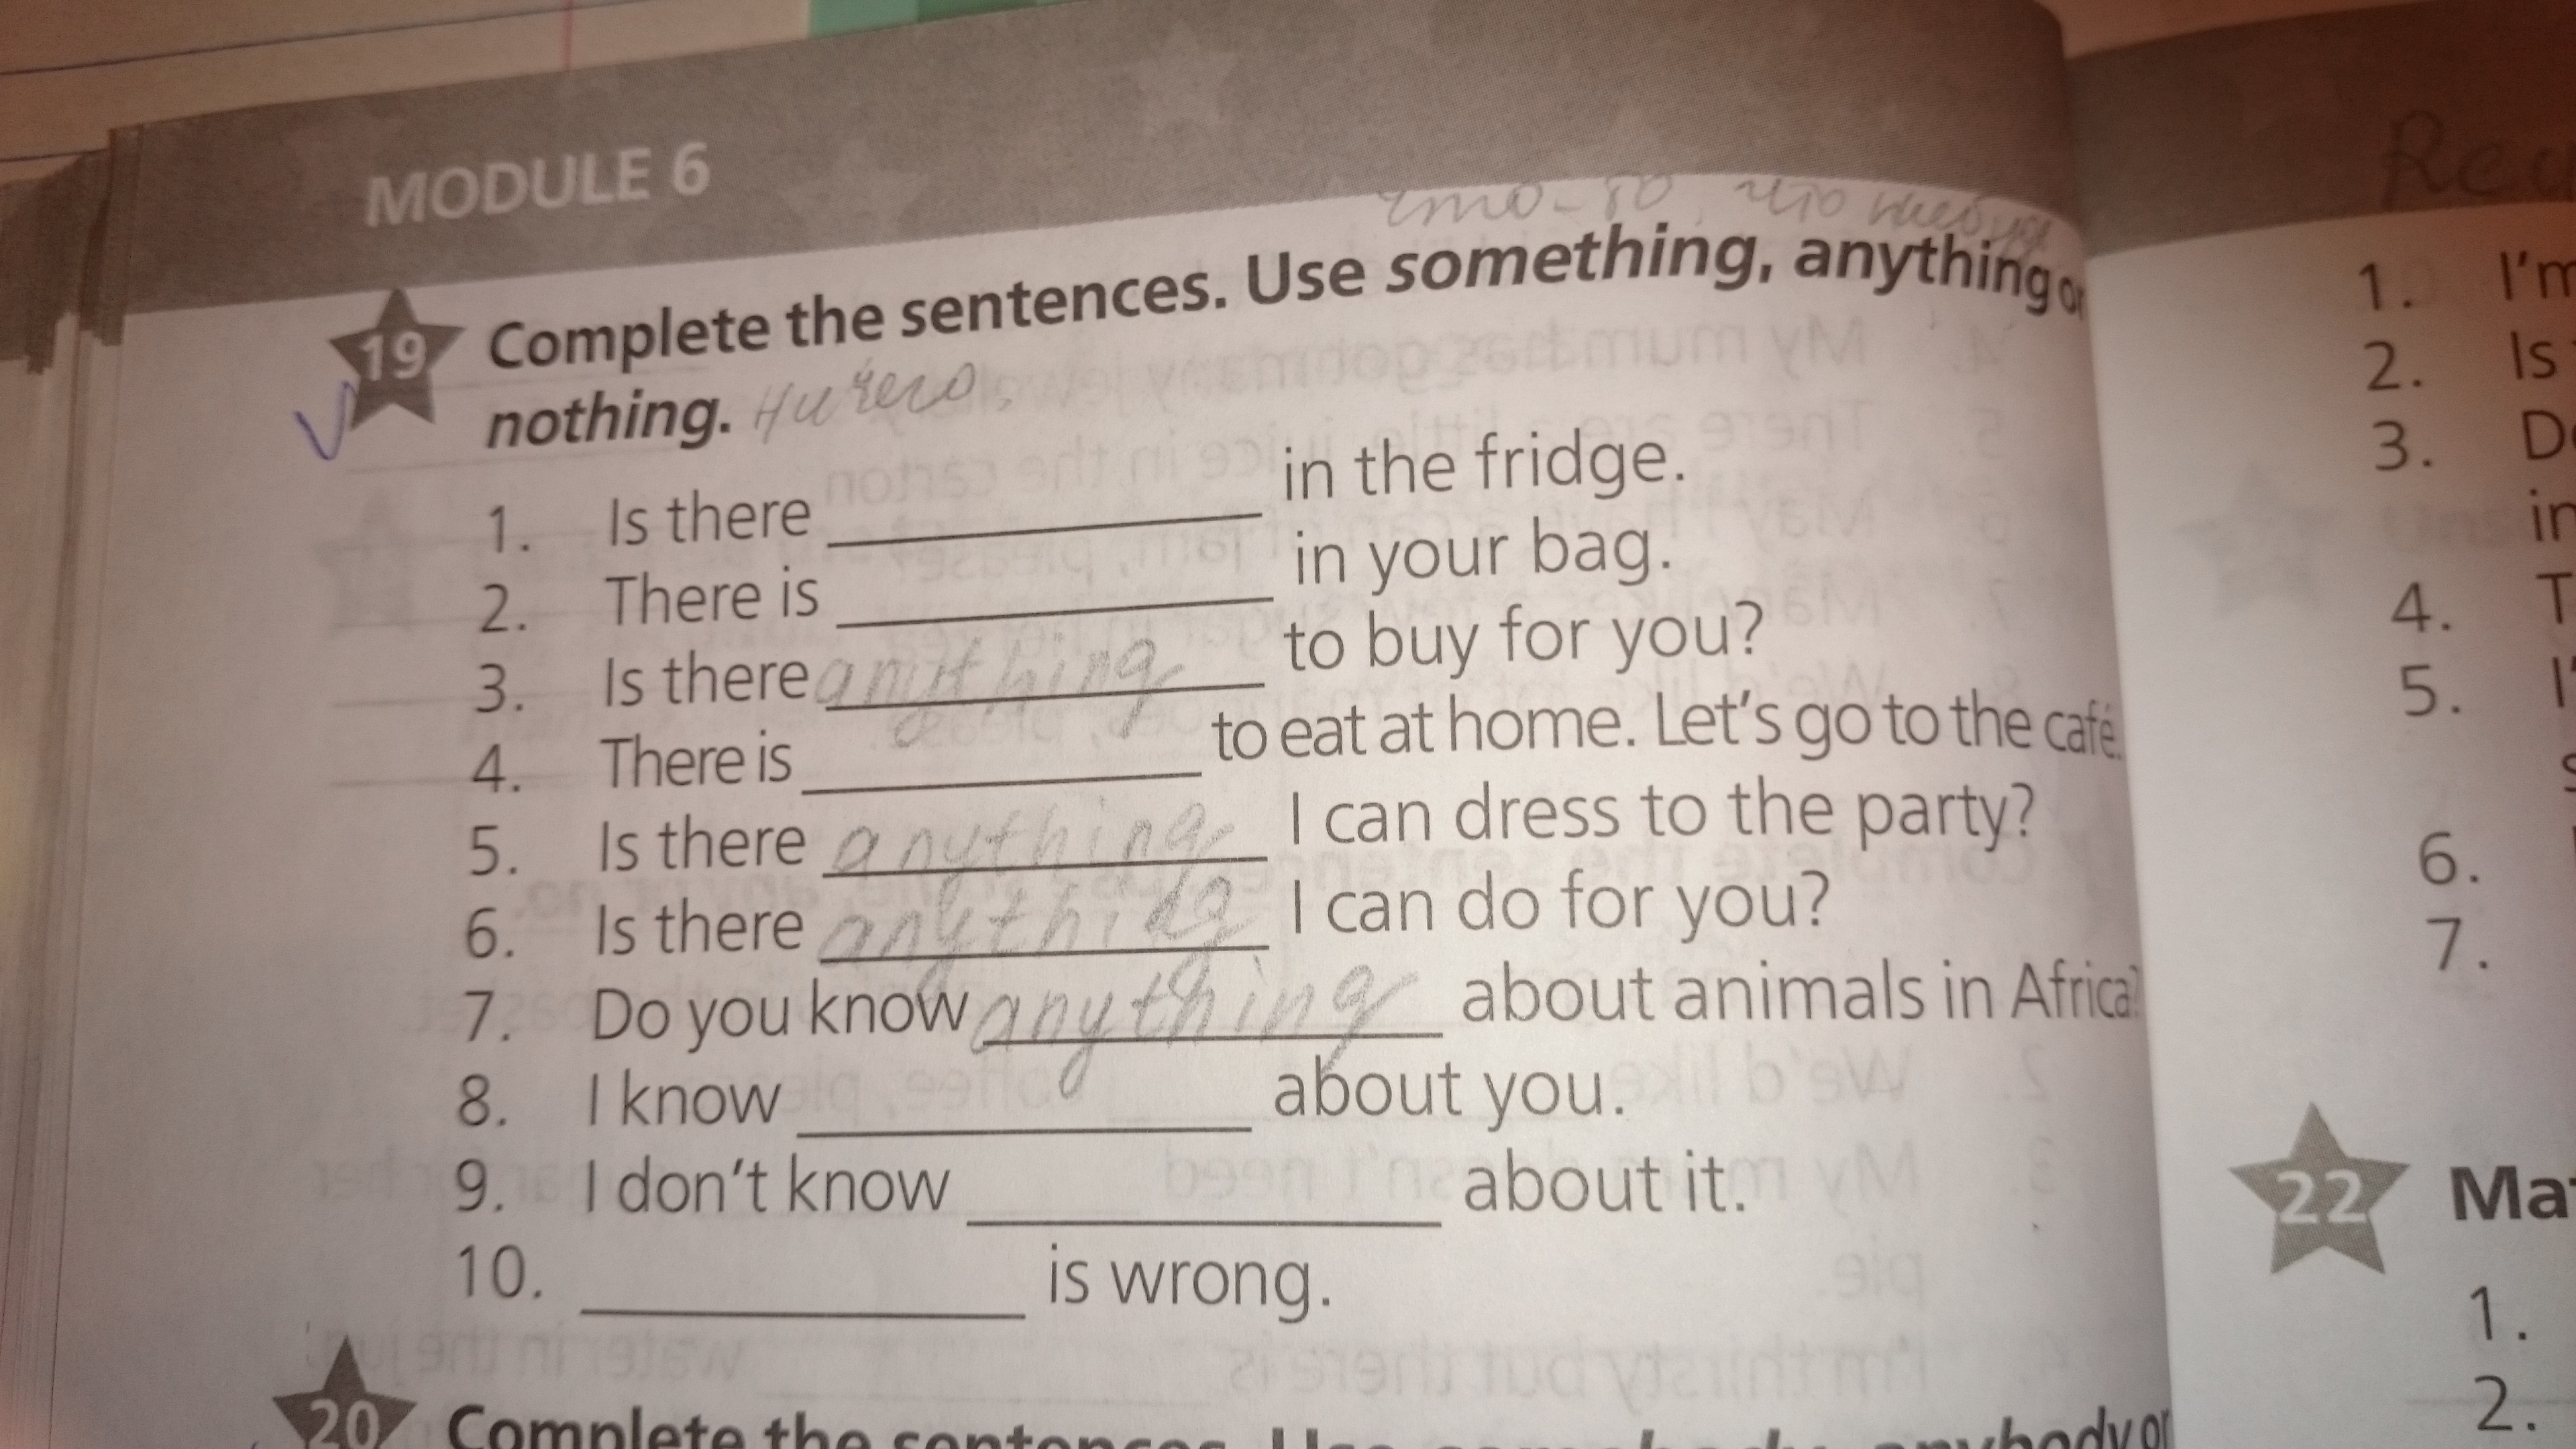 MODULE 6
что-то, что нибудь
19 Complete the sentences. Use something, anything or
nothing. Ничего.
1. Is there ____ in the fridge.
2. There is ____ in your bag.
3. Is there anything to buy for you?
4. There is ____ to eat at home. Let's go to the café.
5. Is there anything I can dress to the party?
6. Is there anything I can do for you?
7. Do you know anything about animals in Africa?
8. I know ____ about you.
9. I don't know ____ about it.
10. ____ is wrong.
20 Complete the sentences. Use somebody, anybody or
1. I'm
2. Is
3.
in
4. T
5.
6.
7.
22
1.
2.